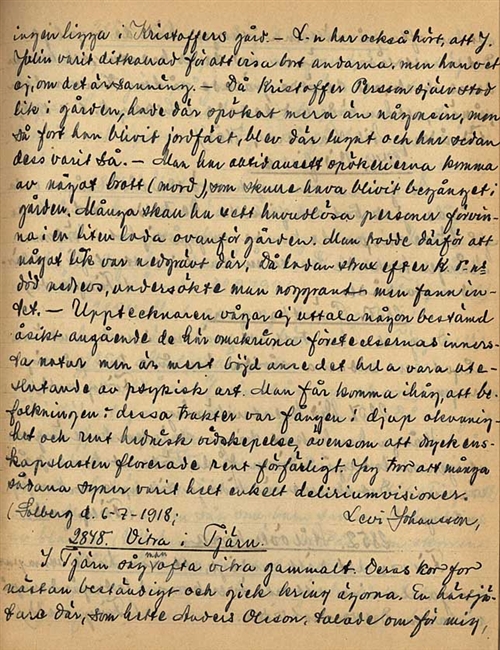 ingen ligga i Kristoffers gård. — L-n har också hört, att J.
Julin varit ditkallad för att visa bort andarna, men han vet
ej, om det är sanning. — Då Kristoffer Persson själv stod
lik i gården, hade där spökat mera än någonsin, men
så fort han blivit jordfäst, blev där lugnt och har sedan
dess varit så. — Man har alltid ansett spökerierna komma
av något brott (mord), som skulle hava blivit begånget i
gården. Många skall ha sett huvudlösa personer försvin-
na i en liten lada ovanför gården. Man trodde därför att
något lik var nedgrävt där. Då ladan strax efter K. P:ns
död nedrevs, undersökte man noggrant men fann in-
tet. — Upptecknaren vågar ej uttala någon bestämd
åsikt angående de här omskrivna företeelsernas inners-
ta natur men är mest böjd anse det hela vara ute-
slutande av psykisk art. Man får komma ihåg, att be-
folkningen i dessa trakter var fången i djup okunnig-
het och rent hednisk vidskepelse, ävensom att dryckens-
kapslasten florerade rent förfärligt. Jag tror att många
sådana syner varit helt enkelt deliriumvisioner.
(Solberg d. 6-7-1918; Levi Johansson,
2848. Vitra i Tjärn.
I Tjärn såg man ofta vitra gammalt. Deras kor for
nästan beständigt och gick kring ägorna. En hästjä-
tare där, som hette Anders Olsson, talade om för mig,